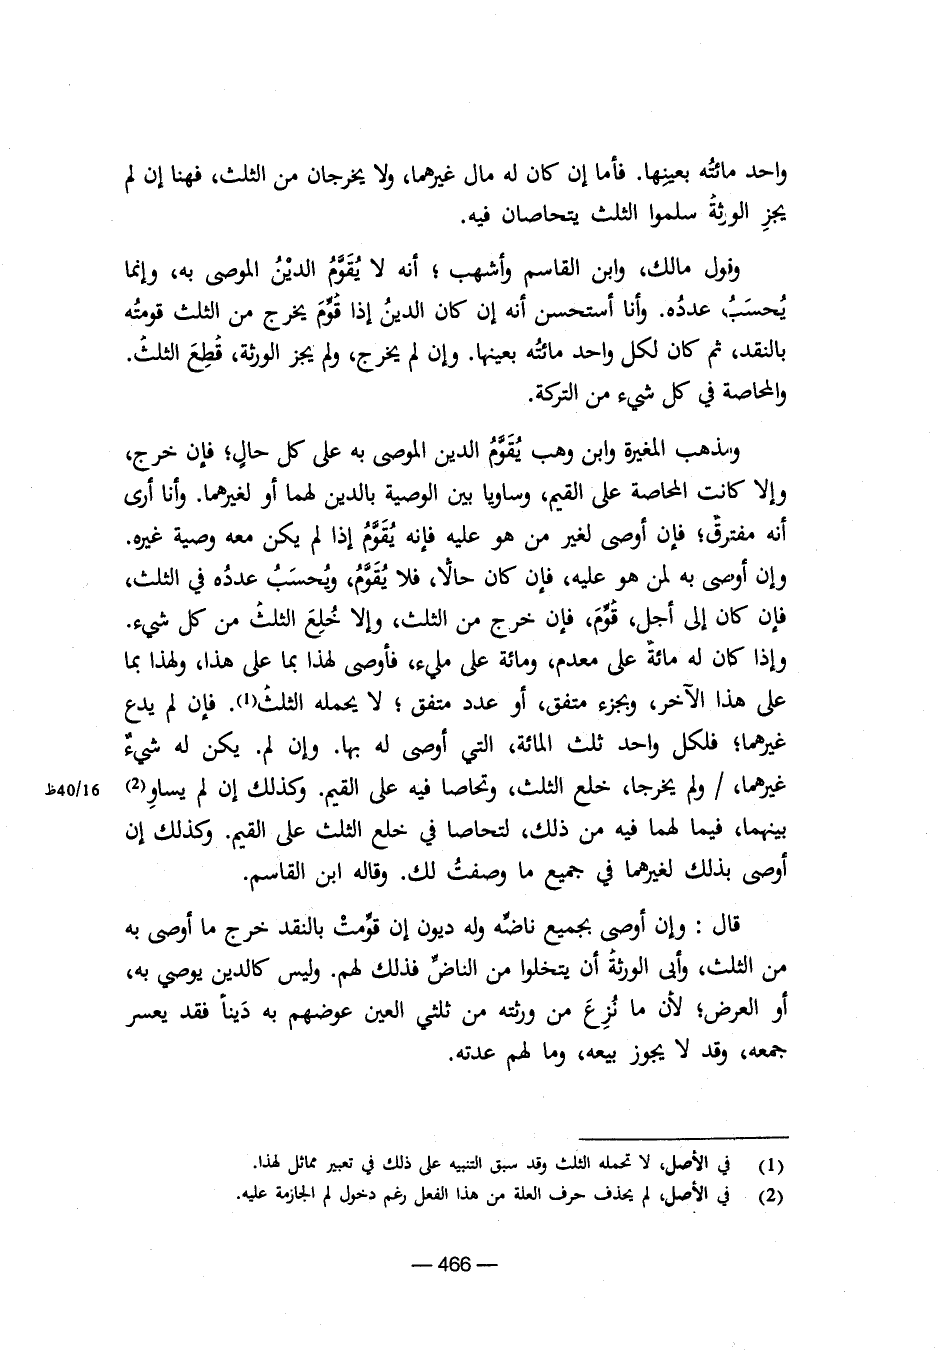 واحد مائتُه بعينها. فأما إن كان له مال غيرهما، ولا يخرجان من الثلث، فهنا إن لم
يجزِ الورثةُ سلموا الثلث يتحاصان فيه.
وقول مالك، وابن القاسم وأشهب ؛ أنه لا يُقَوَّمُ الديْنُ الموصى به، وإنما
يُحسَبُ عددُه. وأنا أستحسن أنه إن كان الدينُ إذا قُوِّمَ يخرج من الثلث قومتُه
بالنقد، ثم كان لكل واحد مائتُه بعينها. وإن لم يخرج، ولم يجز الورثة، قُطِعَ الثلثُ.
والمحاصة في كل شيء من التركة.
ومذهب المغيرة وابن وهب يُقَوَّمُ الدين الموصى به على كل حالٍ؛ فإن خرج،
وإلا كانت المحاصة على القيم، وساويا بين الوصية بالدين لهما أو لغيرهما. وأنا أرى
أنه مفترقٌ؛ فإن أوصى لغير من هو عليه فإنه يُقَوَّمُ إذا لم يكن معه وصية غيره.
وإن أوصى به لمن هو عليه، فإن كان حالًّا، فلا يُقَوَّمُ، ويُحسَبُ عددُه في الثلث،
فإن كان إلى أجل، قُوِّمَ، فإن خرج من الثلث، وإلا خُلِعَ الثلثُ من كل شيء.
وإذا كان له مائةٌ على معدم، ومائة على مليء، فأوصى لهذا بما على هذا، ولهذا بما
على هذا الآخر، وبجزء متفق، أو عدد متفق ؛ لا يحمله الثلثُ(1). فإن لم يدع
غيرهما؛ فلكل واحد ثلث المائة، التي أوصى له بها. وإن لم. يكن له شيءٌ
غيرهما، / ولم يخرجا، خلع الثلث، وتحاصا فيه على القيم. وكذلك إن لم يساوِ(2)
40/16ظ
بينهما، فيما لهما فيه من ذلك، لتحاصا في خلع الثلث على القيم. وكذلك إن
أوصى بذلك لغيرهما في جميع ما وصفتُ لك. وقاله ابن القاسم.
قال : وإن أوصى بجميع ناضِّه وله ديون إن قوِّمتْ بالنقد خرج ما أوصى به
من الثلث، وأبى الورثةُ أن يتخلوا من الناضِّ فذلك لهم. وليس كالدين يوصي به،
أو العرض؛ لأن ما نُزِعَ من ورثته من ثلثي العين عوضهم به دَيناً فقد يعسر
جمعه، وقد لا يجوز بيعه، وما لهم عدته.
(1) في الأصل، لا تحمله الثلث وقد سبق التنبيه على ذلك في تعبير مماثل لهذا.
(2) في الأصل، لم يحذف حرف العلة من هذا الفعل رغم دخول لم الجازمة عليه.
— 466 —